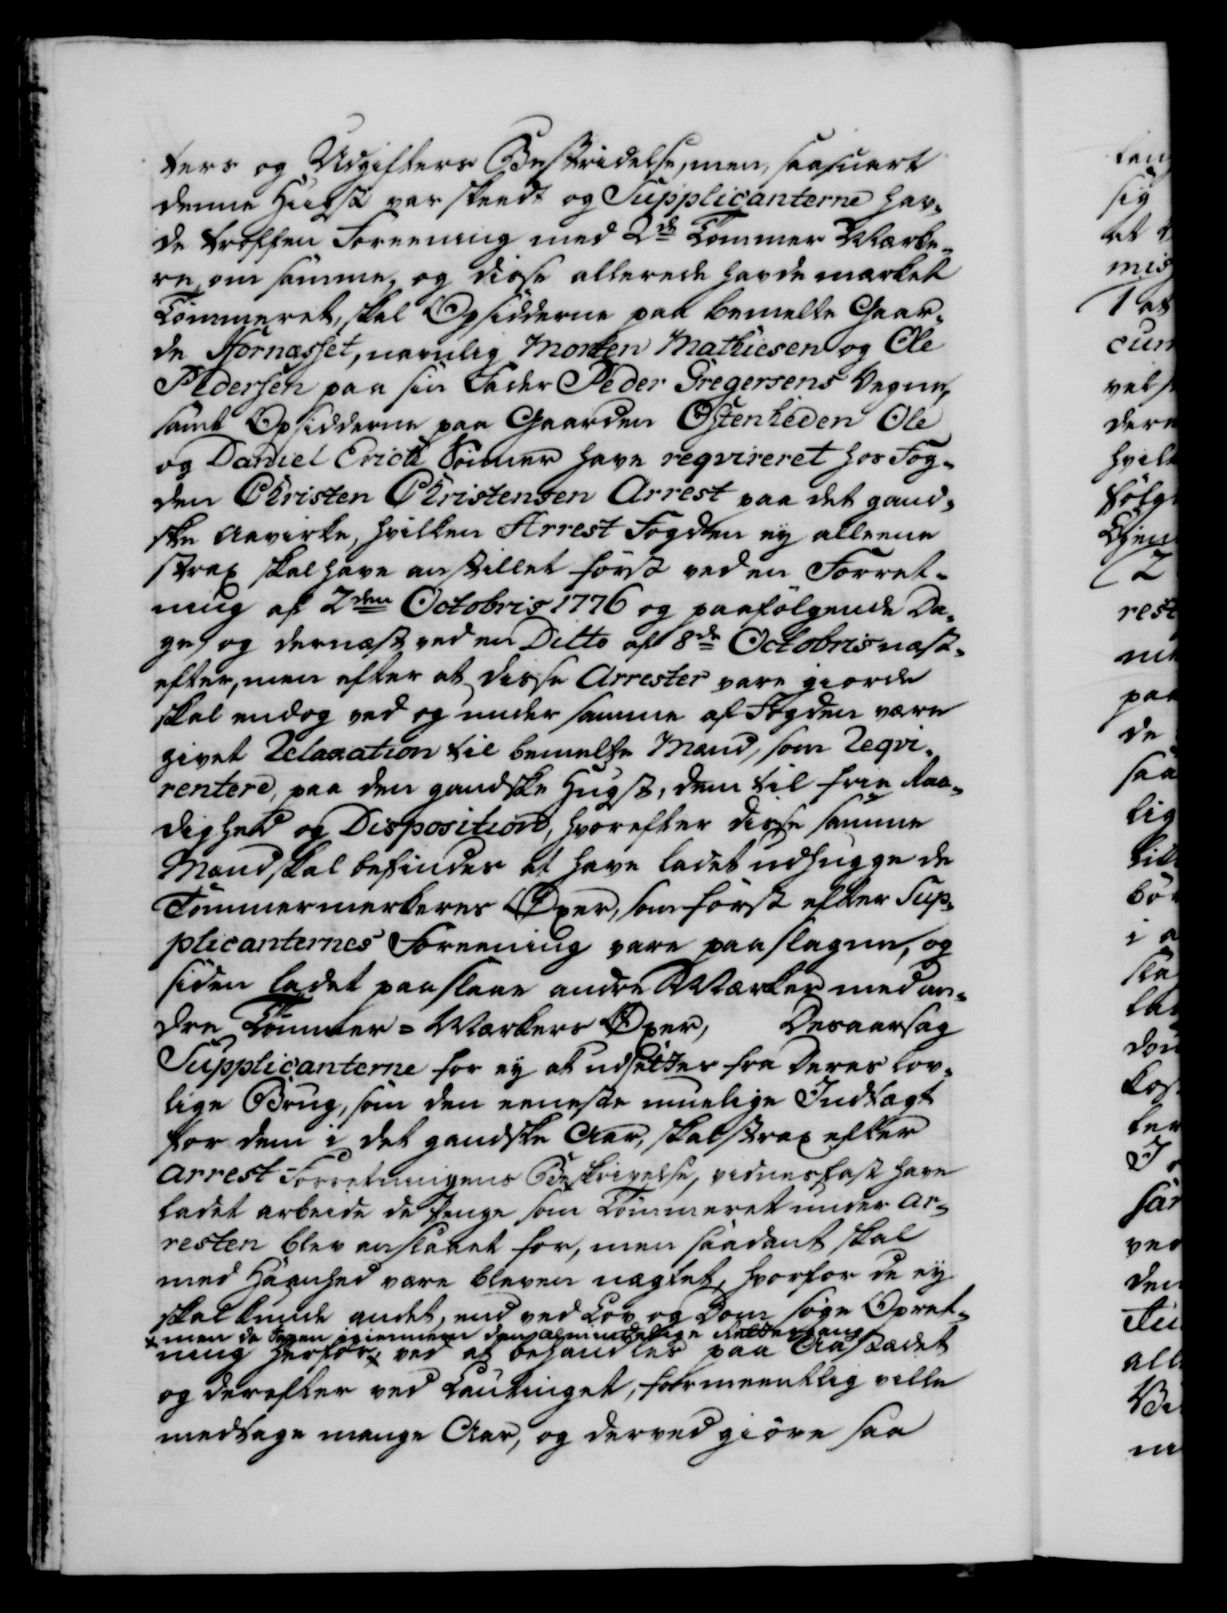 ters og Udgifters Bestridelse, men, saasnart
denne Hugst var skeedt og Supplicanterne hav¬
de truffen Foreening med 2de Tømmer Mærke¬
re, om samme, og disse allerede havde mærket
Tømmeret, skal Opsidderne paa bemelte Gaar¬
de Stornæsset, navnlig Morten Mathiesen og Ole
Pedersen paa sin Fader Peder Gregersens Vegne,
samt Opsidderne paa Gaarden Ostenheden Ole
og Daniel Erichs Sønner have reqvireret hos Fog¬
den Christen Christensen Arrest paa det gand¬
ske Aavirke, hvilken Arrest Fogden ey alleene
strax skal have anstillet først ved en Forret¬
ning af 2den Octobris 1776 og paafølgende Da¬
ge, og dernæst ved en Ditto af 8de Octobris næst¬
efter, men efter at disse Arrester vare giorde
skal endog ved og under samme af Fogden være
givet Relaxation til bemelte Mænd, som Reqvi¬
rentere, paa den gandske Hugst, dem til frie Raa¬
dighed og Disposition, hvorefter disse samme
Mænd skal befindes at have ladet udhugge de
Tømmermerkeres Øxer, som først efter Sup¬
plicanternes Foreening vare paaslagne, og
siden ladet paaslaae andre Mærker med an¬
dre Tømmer=Mærkers Øxer, Desaarsag
Supplicanterne for ey at udsettes fra deres lov¬
lige Brug, som den eeneste muelige Indtægt
for dem i det gandske Aar, skal strax efter
Arrest-Forretningens Beskrivelse, vidnesfast have
ladet arbeide de Penge som Tømmeret under Ar¬
resten blev anslaaet for, men saadant skal
med Haanhed være bleven nægtet, hvorfor de ey
skal kunde andet, end ved Lov og Dom søge Opret¬
x men da Sagen igiennem den almindelige Rettergang
ning herfor, x ved at behandles paa Aastædet
og derefter ved Laugtinget, formeentlig ville
medtage mange Aar, og derved giøre saa